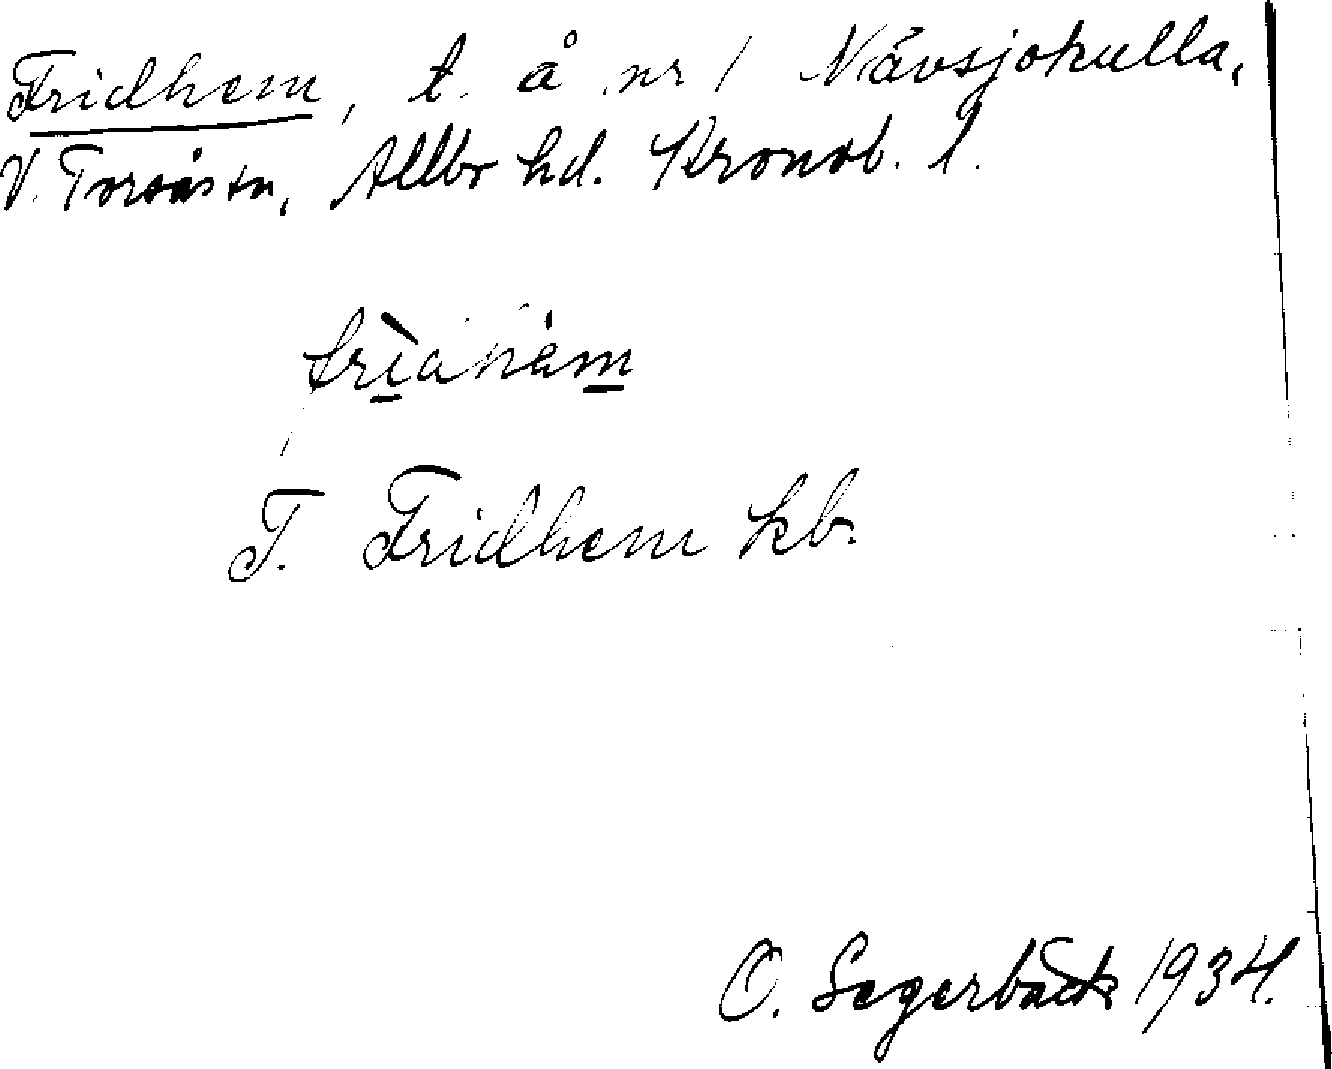 Fridhem, t. å nr 1 Nävsjökulla,
V. Torsås sn, Allbo hd. Kronob. l.
T. Fridhem kb.
O. Segerbäck 1934.